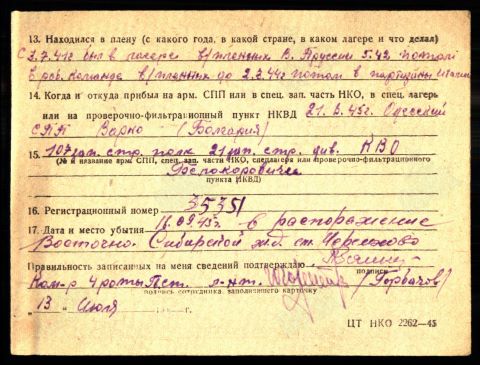 13. Находился в плену (с какого года, в какой стране, в каком лагере и что делал)
с 3.7.41г был в лагере в/пленных В. Пруссии 5.42 потом
в раб. команде в/пленных до 2.3.44г потом в партизаны
14. Когда и откуда прибыл на арм. СПП или в спец. зап. часть НКО, в спец. лагерь
или на проверочно-фильтрационный пункт НКВД 21.6.45г. Одесский
СПП Варно (Болгария)
15. 107 зап. стр. полк 21 зап. стр. див. КВО
(№ и название арм. СПП, спец. зап. части НКО, спецлагеря или проверочно-фильтрационного
Белокоровичи
пункта НКВД)
16. Регистрационный номер 35351
17. Дата и место убытия 16.09.45г. в распоряжение
Восточно. Сибирской ж.д. ст. Черемхово
Правильность записанных на меня сведений подтверждаю
подпись
Ком-р 4 роты ст. л-нт. (Горбачов)
подпись сотрудника, заполнявшего карточку
"13" Июля 194 г.
ЦТ НКО 2262—45